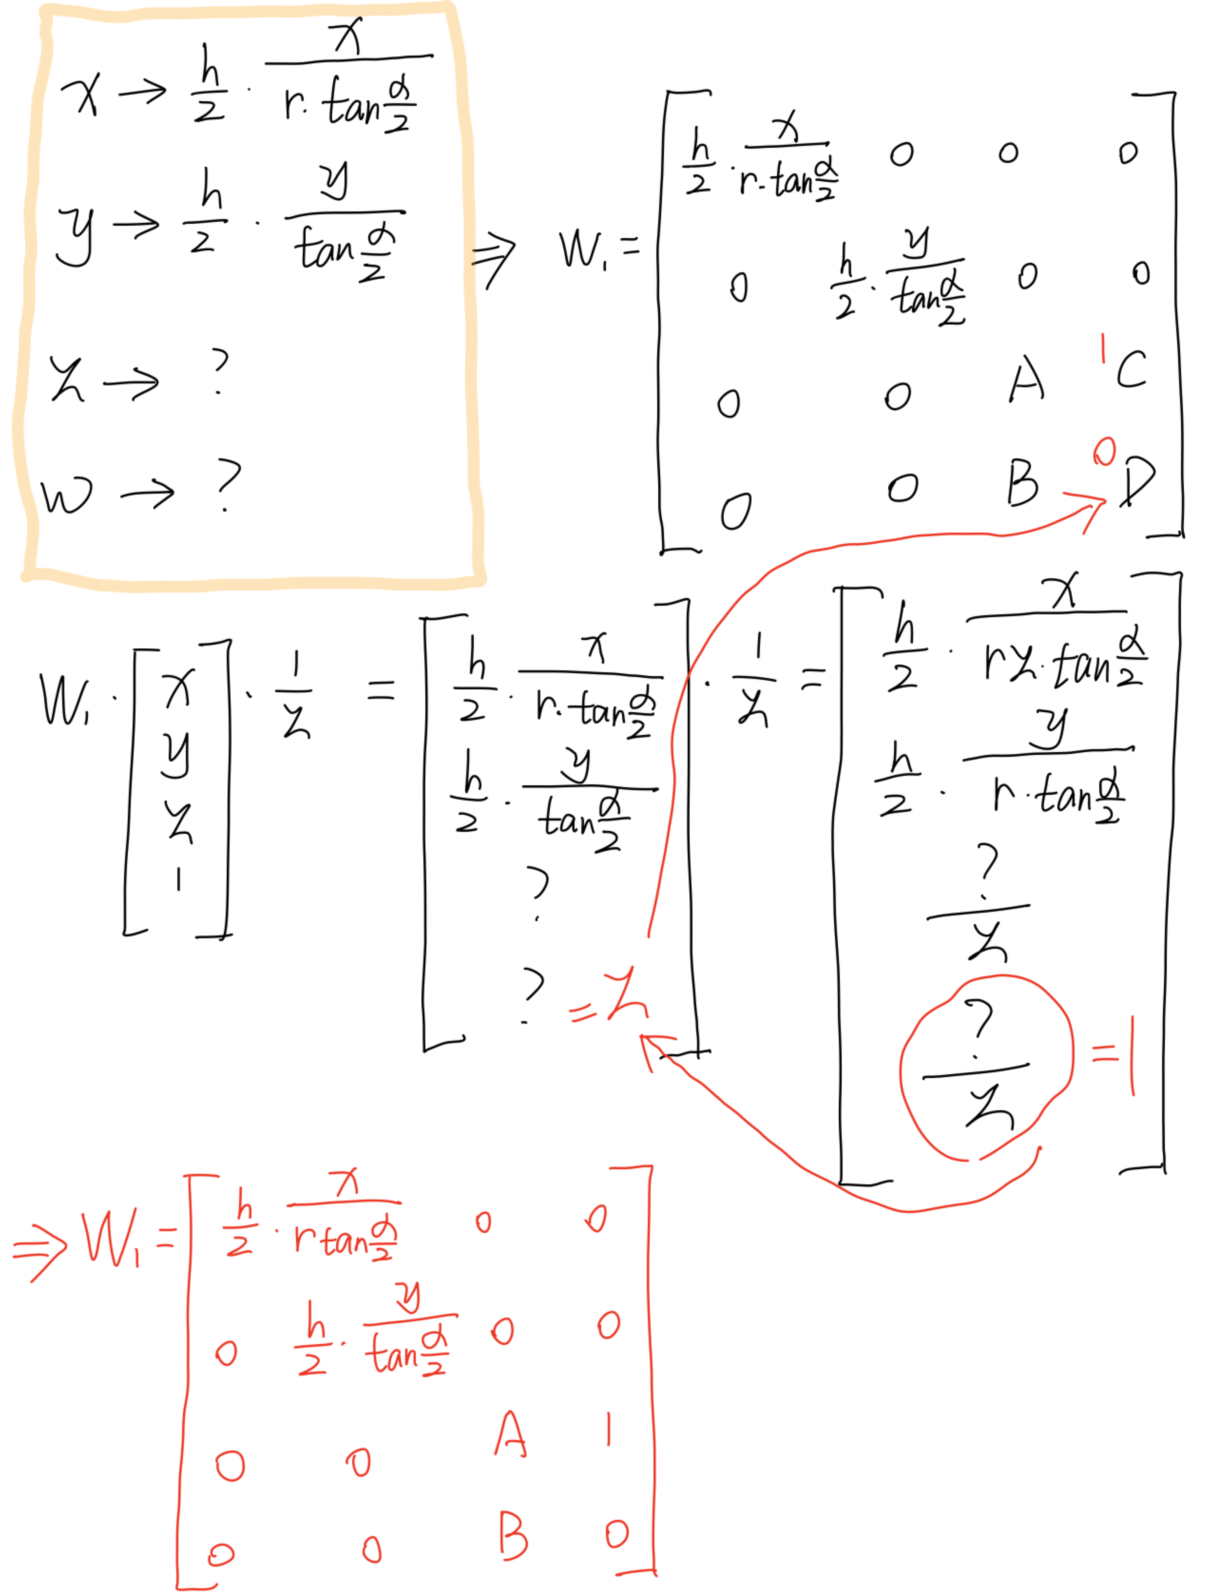 x → h/2 · x/(r·tan α/2)
y → h/2 · y/(tan α/2)
z → ?
w → ?
⇒ W₁ = [ h/2 · x/(r·tan α/2) 0 0 0
0 h/2 · y/(tan α/2) 0 0
0 0 A 1 C
0 0 B 0 D ]
W₁ · [ x y z 1 ] · 1/z = [ h/2 · x/(r·tan α/2) h/2 · y/(tan α/2) ? ? = z ] · 1/z = [ h/2 · x/(rz·tan α/2) h/2 · y/(r·tan α/2) ?/z ?/z = 1 ]
⇒ W₁ = [ h/2 · x/(r tan α/2) 0 0
0 h/2 · y/(tan α/2) 0 0
0 0 A 1
0 0 B 0 ]